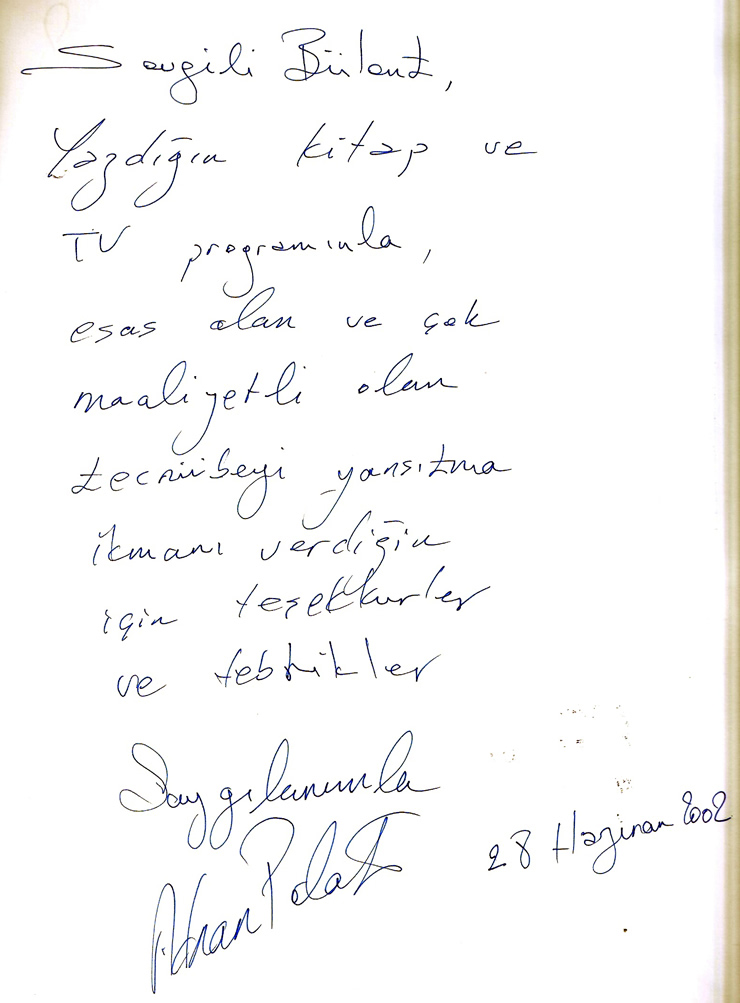 Sevgili Bülent,
Yazdığın kitap ve
TV programınla,
esas olan ve çok
maaliyetli olan
tecrübeyi yansıtma
ikmanı verdiğin
için teşekkürler
ve tebrikler
Saygılarımla
Adnan Polat
28 Haziran 2002